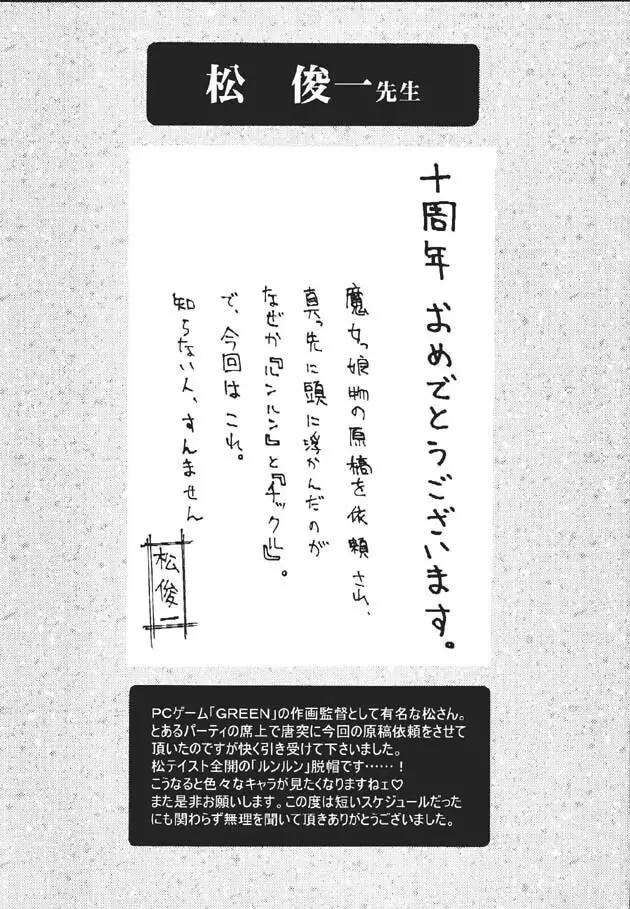 松 俊一先生
十周年 おめでとうございます。
魔女っ娘物の原稿を依頼され、
真っ先に頭に浮かんだのが
なぜか『ルンルン』と『チックル』。
で、今回はこれ。
知らない人、すんません
松俊一
PCゲーム「GREEN」の作画監督として有名な松さん。
とあるパーティの席上で唐突に今回の原稿依頼をさせて
頂いたのですが快く引き受けて下さいました。
松テイスト全開の「ルンルン」脱帽です……！
こうなると色々なキャラが見たくなりますねェ♡
また是非お願いします。この度は短いスケジュールだった
にも関わらず無理を聞いて頂きありがとうございました。